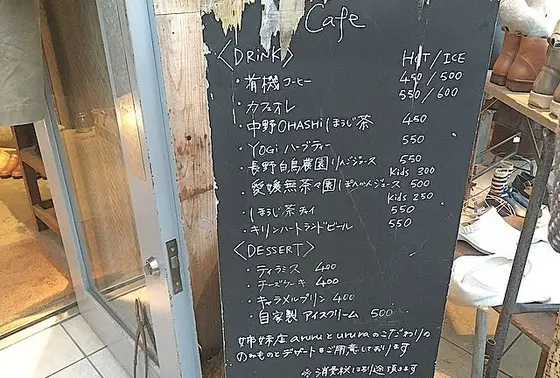 Cafe
〈DRINK〉 HOT/ICE
・有機コーヒー 450/500
・カフェオレ 550/600
・中野OHASHiほうじ茶 450
・YOGiハーブティー 550
・長野白鳥農園りんごジュース 550
Kids 300
・愛媛無茶々園ぽんかんジュース 500
Kids 250
・ほうじ茶チャイ 550
・キリンハートランドビール 550
〈DESSERT〉
・ティラミス 400
・チーズケーキ 400
・キャラメルプリン 400
・自家製アイスクリーム 500
姉妹店aruruとururaのこだわりの
のみものとデザートをご用意しております
※消費税は別途頂きます